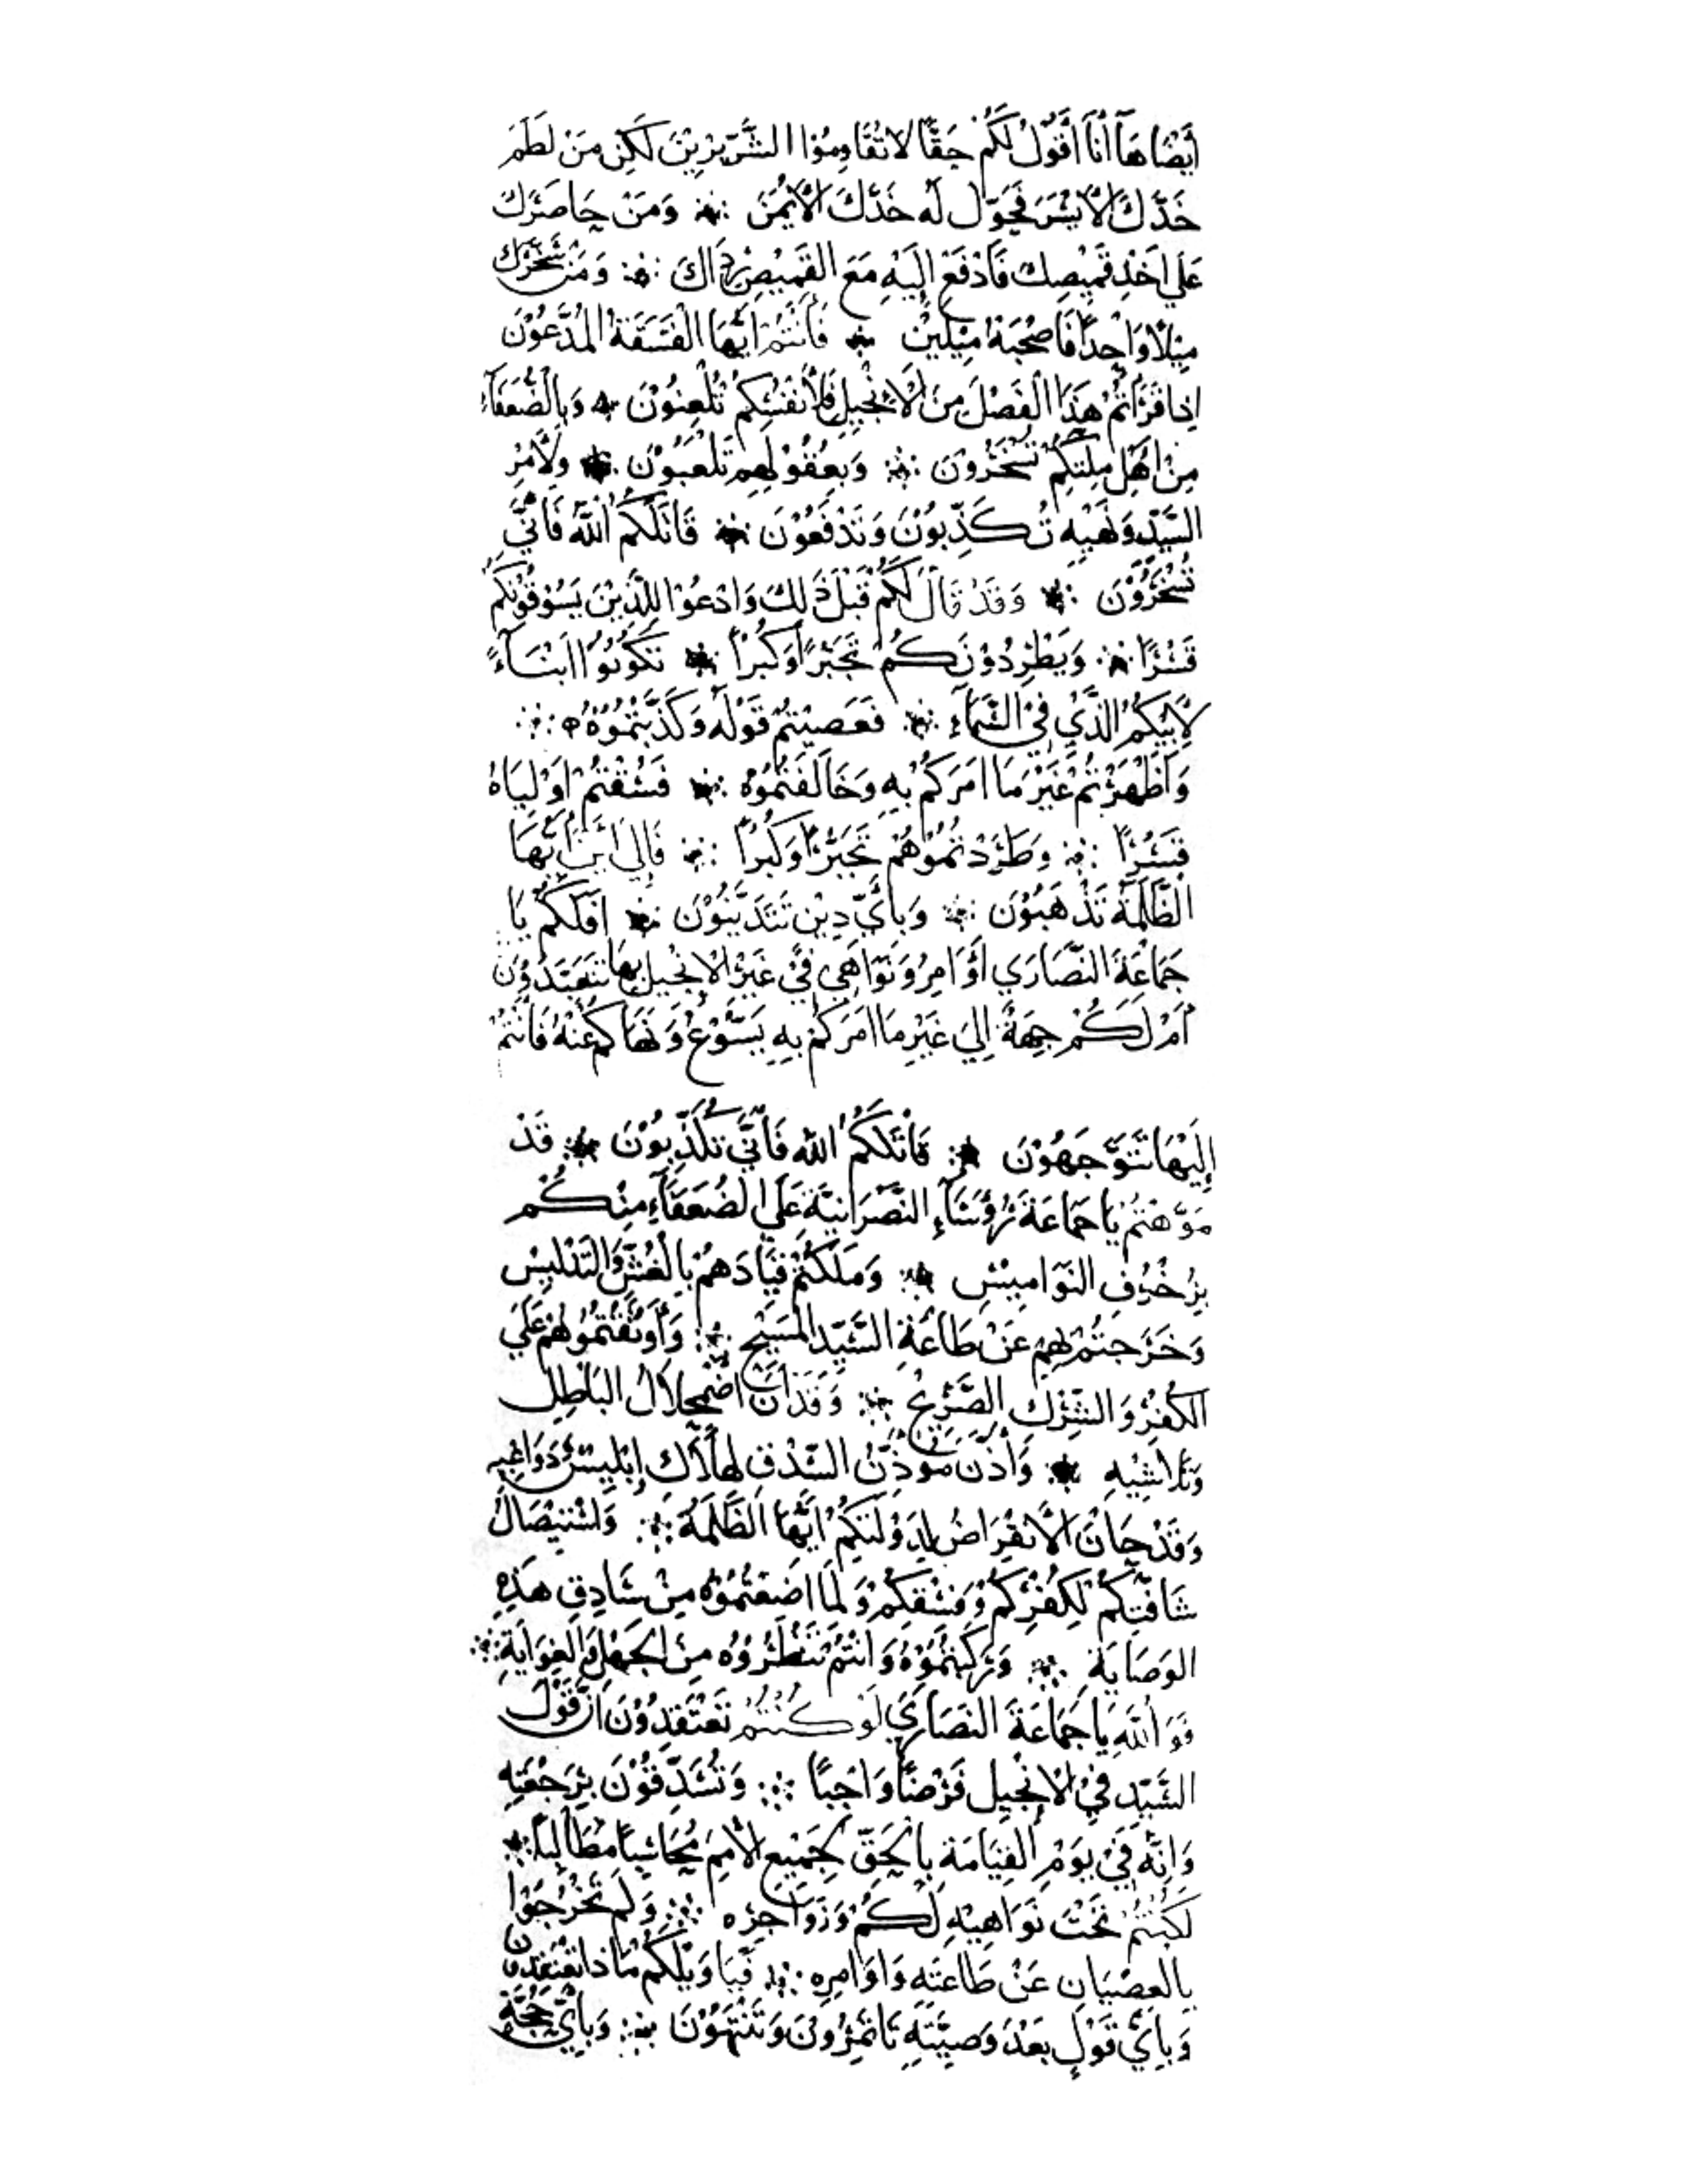 أَيْضًا هَآ أَنَا أَقُوْلُ لَكُمْ حَقًّا لَا تُقَاوِمُوْا الشَّرِّيْرِيْنَ لَكِنْ مَنْ لَطَمَ
خَدَّكَ الْأَيْسَرَ فَحَوِّلْ لَهُ خَدَّكَ الْأَيْمَنَ ۞ وَمَنْ حَاصَرَكَ
عَلَي اَخْذِ قَمِيْصِكَ فَادْفَعْ إِلَيْهِ مَعَ القَمِيْصِ رِدَاكَ ۞ وَمَنْ سَخَّرَكَ
مِيْلًا وَاحِدًا فَاصْحَبْهُ مِيْلَيْنِ ۞ فَأَنْتُمْ اَيُّهَا الْفَسَقَةُ الْمُدَّعُوْنَ
اِذَا قَرَأْتُمْ هَذَا الْفَصْلَ مِنَ الْإِنْجِيْلِ فَلِأَنْفُسِكُمْ تُلْعِنُوْنَ ۞ وَبِالْضُّعَفَآءِ
مِنْ اَهْلِ مِلَّتِكُمْ تُسَخِّرُوْنَ ۞ وَبِعُقُوْلِهِمْ تَلْعَبُوْنَ ۞ وَلِأَمْرِ
السَّيِّدِ وَنَهْيِهِ تُكَذِّبُوْنَ وَتَدْفَعُوْنَ ۞ قَاتَلَكُمُ اللَّهُ فَأَنَّي
تُسْخَرُوْنَ ۞ وَقَدْ قَالَ لَكُمْ قَبْلَ ذَلِكَ وَادْعُوْا لِلَّذِيْنَ يَسُوْقُوْنَكُمْ
قَسْرًا ۞ وَيَطْرِدُوْنَكُمْ تَجَبُّرًا وَكُبْرًا ۞ تَكُوْنُوْا اَبْنَآءً
لِأَبِيْكُمُ الَّذِيْ فِيْ السَّمَآءِ ۞ فَعَصَيْتُمْ قَوْلَهُ وَكَذَّبْتُمُوْهُ ۞
وَأَظْهَرْتُمْ غَيْرَ مَا اَمَرَكُمْ بِهِ وَخَالَفْتُمُوْهُ ۞ فَسُقْتُمْ اَوْلِيَاهُ
قَسْرًا ۞ وَطَرَدْتُمُوْهُمْ تَجَبُّرًا وَكُبْرًا ۞ فَإِلَي اَيْنَ اَيُّهَا
الظَّلَمَةُ تَذْهَبُوْنَ ۞ وَبِأَيِّ دِيْنٍ تَتَدَيَّنُوْنَ ۞ اَفَلَكُمْ يَا
جَمَاعَةَ النَّصَارَي أَوَامِرُ وَنَوَاهِي فِيْ غَيْرِ الْإِنْجِيْلِ بِهَا تَتَعَبَّدُوْنَ
أَمْ لَكُمْ جِهَةٌ اِلَيَ غَيْرِ مَا اَمَرَكُمْ بِهِ يَسُّوْعُ وَنَهَاكُمْ عَنْهُ فَأَنْتُمْ
إِلَيْهَا تَتَوَّجَهُوْنَ ۞ قَاتَلَكُمُ اللَّهُ فَأَنَّي تُكَذِّبُوْنَ ۞ قَدْ
مَوَّهْتُمْ يَا جَمَاعَةَ رُؤَسَآءِ النَّصْرَانِيَّةِ عَلَي الضُعَفَآءِ مِنْكُمْ
بِزُخْرُفِ النَوَامِيْسِ ۞ وَمَلَكْتُمْ قِيَادَهُمْ بِالْغُشِّ وَالتَّدْلِيْسِ
وَخَرَجْتُمْ بِهِمْ عَنْ طَاعَةِ السَّيِّدِ المَسِيْحِ ۞ وَأَوْثَقْتُمُوْهُمْ عَلَيَ
الكُفْرِ وَالشِّرْكِ الصَّرِيْحِ ۞ وَقَدْ آنَ اضْمِحْلَالُ البَاطِلِ
وَتَلَاشِيْهِ ۞ وَأَذَّنَ مُؤَذِّنُ السِّدْقِ لِهَلَاكِ إِبْلِيْسَ وَدَوَاعِيْهِ
وَقَدْ حَانَ الْاِنْقِرَاضُ لِدَوْلَتِكُمْ اَيُّهَا الظَّلَمَةُ ۞ وَاسْتِيْصَالُ
شَافَتِكُمْ لِكُفْرِكُمْ وَفِسْقِكُمْ وَلِمَا اَضَعْتُمُوْهُ مِنْ سَادِقِ هَذِهِ
الوَصَايَةِ ۞ وَرَكِبْتُمُوْهُ وَاَنْتُمْ تَنْظُرُوْهُ مِنَ الجَهْلِ وَالغِوَايَةِ ۞
فَوَ اللَّهِ يَا جَمَاعَةَ النَصَارَيَ لَوْ كُنْتُمْ تَعْتَقِدُوْنَ اَنَّ قَوْلَ
السَّيِّدِ فِيْ الْإِنْجِيْلِ فَرْضًا وَاجِبًا ۞ وَتُسَدِّقُوْنَ بِرَجْعَتِهِ
وَاِنَّهُ فِيْ يَوْمِ القِيَامَةِ بِالحَقِّ لِجَمِيْعِ الْأُمَمِ مُحَاسِبًا مُطَالِبًا ۞
لَكُنْتُمْ تَحْتَ نَوَاهِيْهِ لَكُمْ وَزَوَاجِرِهِ ۞ وَلَمْ تَخْرُجُوْا
بِالعِصْيَانِ عَنْ طَاعَتِهِ وَاَوَامِرِهِ ۞ فَيَا وَيْلَكُمْ مَاذَا تَعْتَقِدُوْنَ
وَبِأَيِّ قَوْلٍ بَعْدَ وَصِيَّتِهِ تَاتَمِرُوْنَ وَتَنْتَهُوْنَ ۞ وَبِأَيِّ حُجَّةٍ